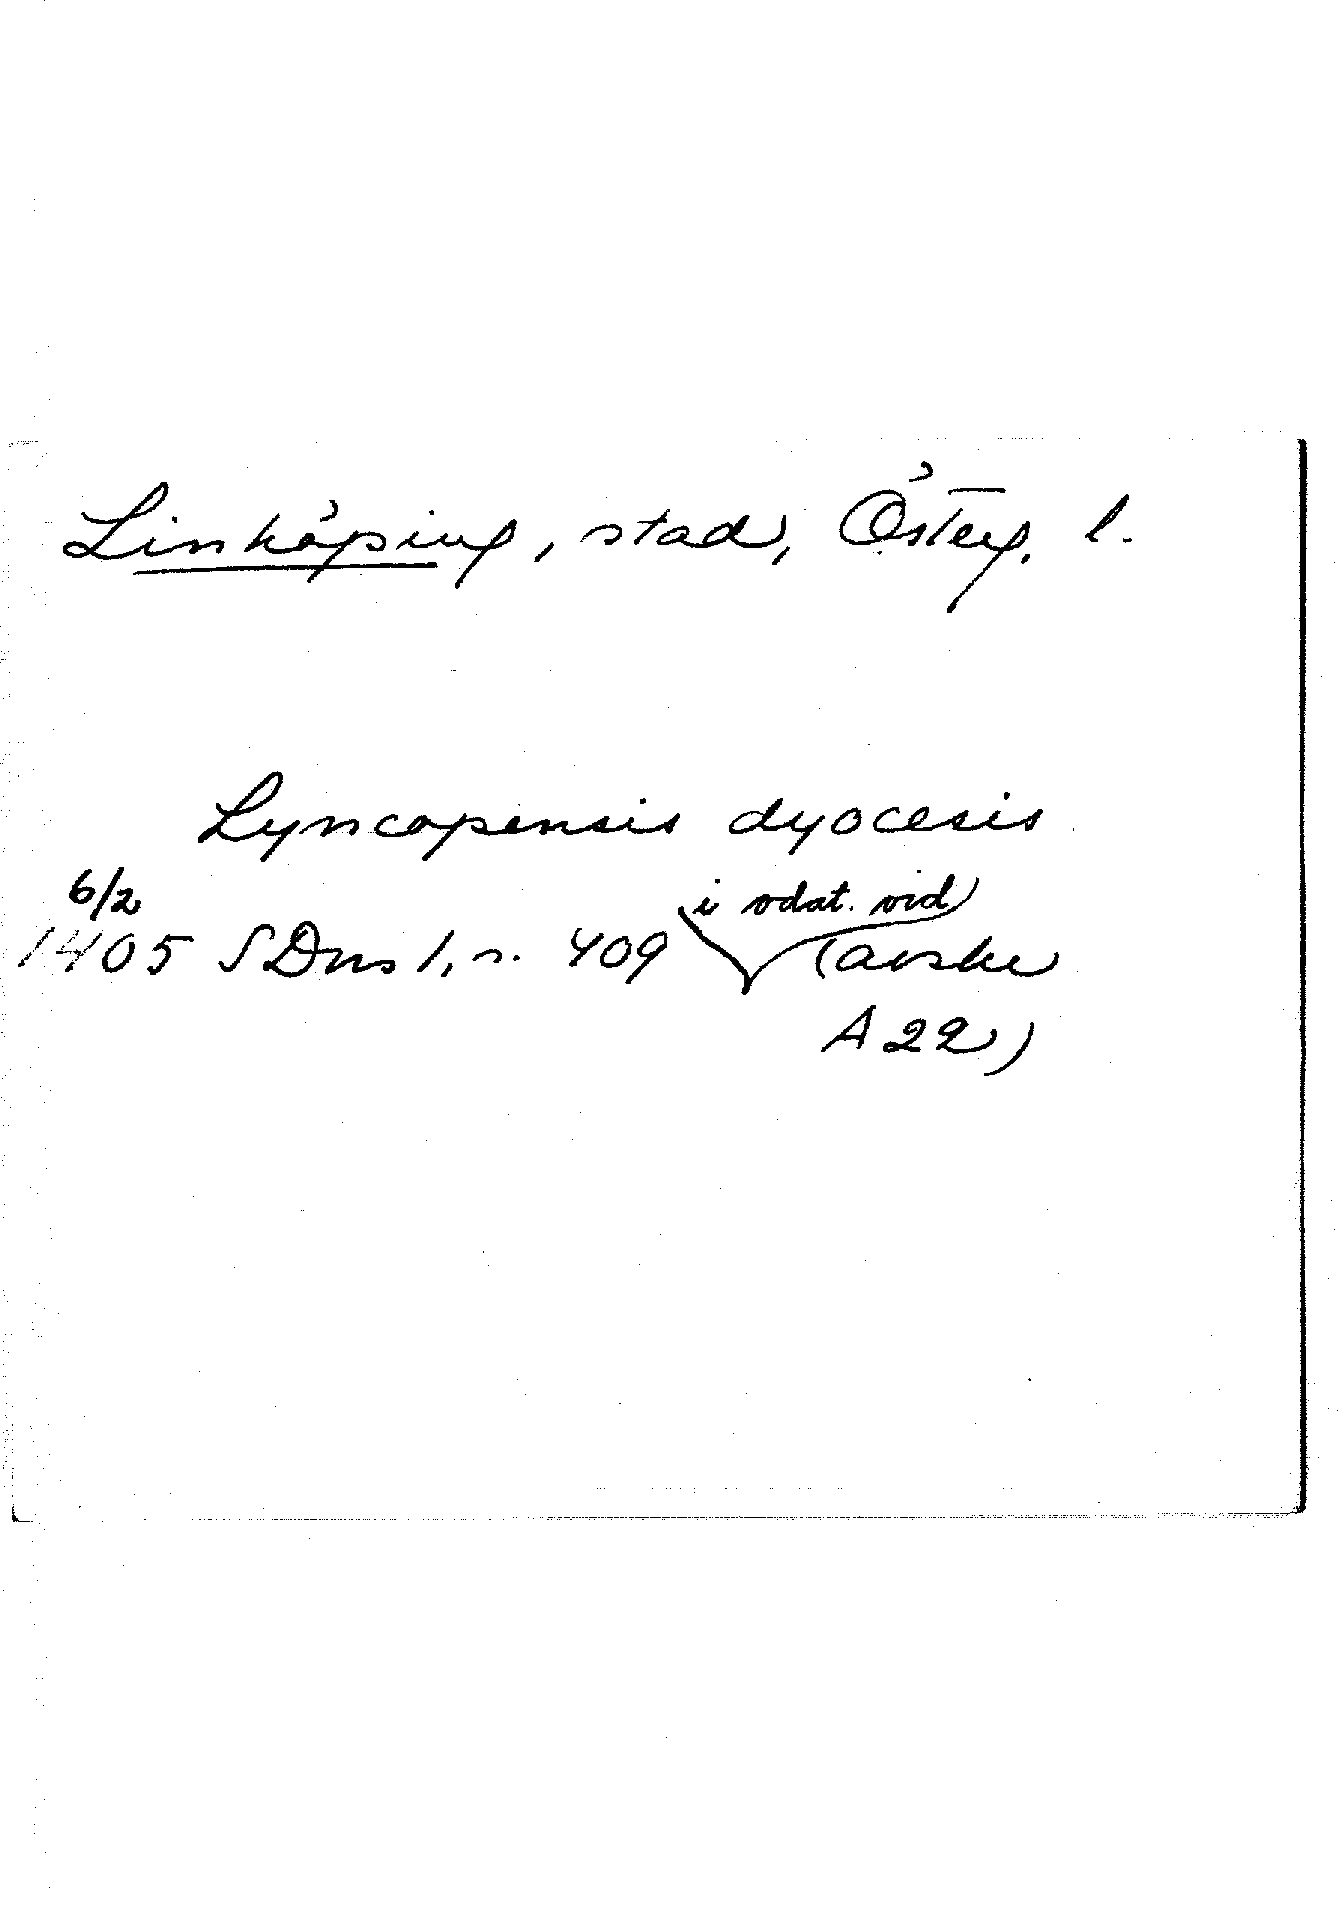 Linköping, stad, Österg. l.
Lyncopensis dyocesis
6/2
i odat. vid
1405 SDns 1, s. 409 (avskr
A 22)